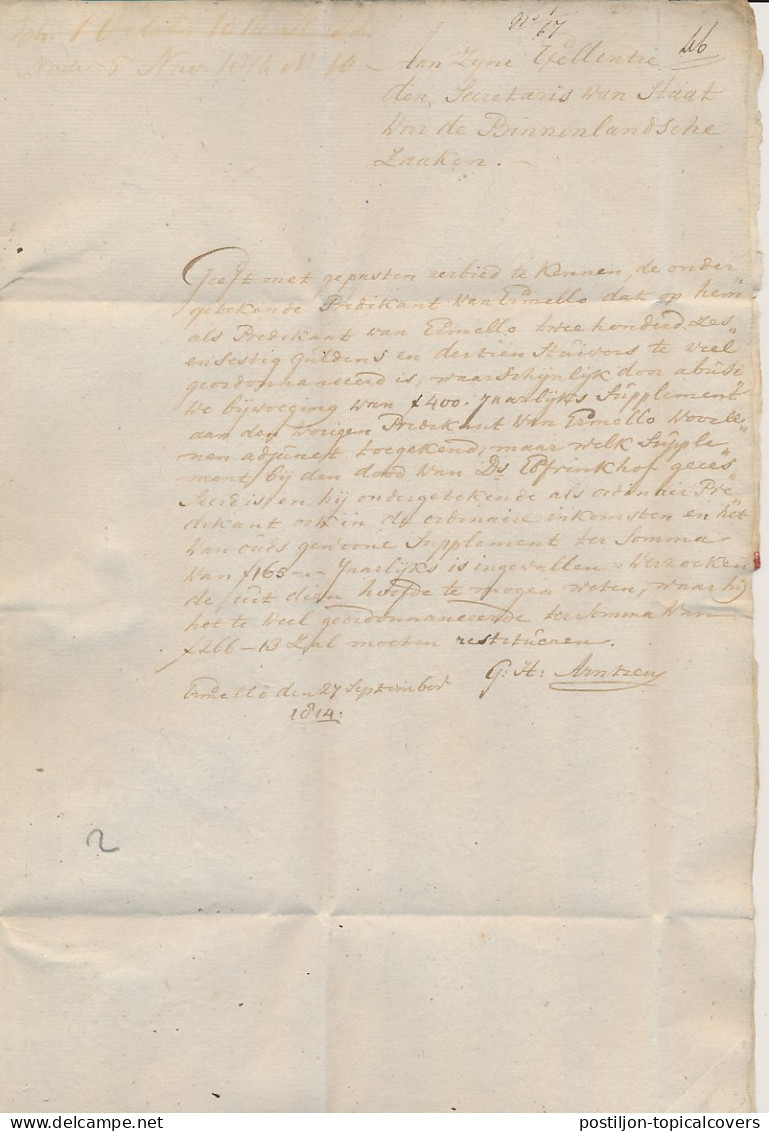 46
67
Nader 5 Nov 1814 N 10
Aan Zyne Excellentie
den Secretaris van Staat
Voor de Binnenlandsche
Zaaken. -
Geeft met gepasten eerbied te kennen, de onder„
getekende Predikant Van Ermello dat op hem
als Predikant van Ermello twee honderd Zes„
en Sestig guldens en dertien Stuivers te veel
geordonnanceerd is, waarschijnlijk door abusi„
ve bijvoeging van f400. Jaarlijks Supplement
aan den vorigen Predikant Van Ermello
nen adjunct toegekend, maar welk Supple„
ment bij den dood Van Ds geces„
seerd is, en hij ondergetekende als ordinair Pre„
dikant ook in de ordinaire inkomsten en het
Van ouds gewoone Supplement ter Somma
Van f165-- Jaarlijks is ingevallen. Verzoeken„
de uit dien hoofde te mogen weten, waar hij
het te veel geordonnanceerde ter Somma Van
f266-13 Zal moeten restitueren.
G: H: Arntzen
Ermello den 27 September
1814:
2
postiljon-topicalcovers